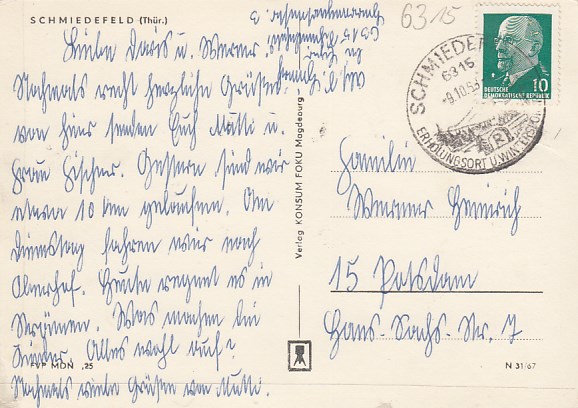 SCHMIEDEFELD (Thür.)
Liebe Doris u. Werner
Nochmals recht herzliche Grüße
von hier senden Euch Mutti u.
Frau Fischer. Gestern sind wir
etwa 10 km gelaufen. Am
Dienstag fahren wir nach
Oberhof. Heute regnet es in
Strömen. Was machen die
Kinder. Alles wohl auf?
Nochmals viele Grüße von Mutti.
EVP MDN ,25
6315
Verlag KONSUM FOKU Magdeburg
SCHMIEDEF
6315
-9.10.
ERHOLUNGSORT U. WINTERSPORT
DEUTSCHE
DEMOKRATISCHE REPUBLIK
10
Familie
Werner Heinrich
15 Potsdam
Hans-Sachs-Str. 7
N 31/67